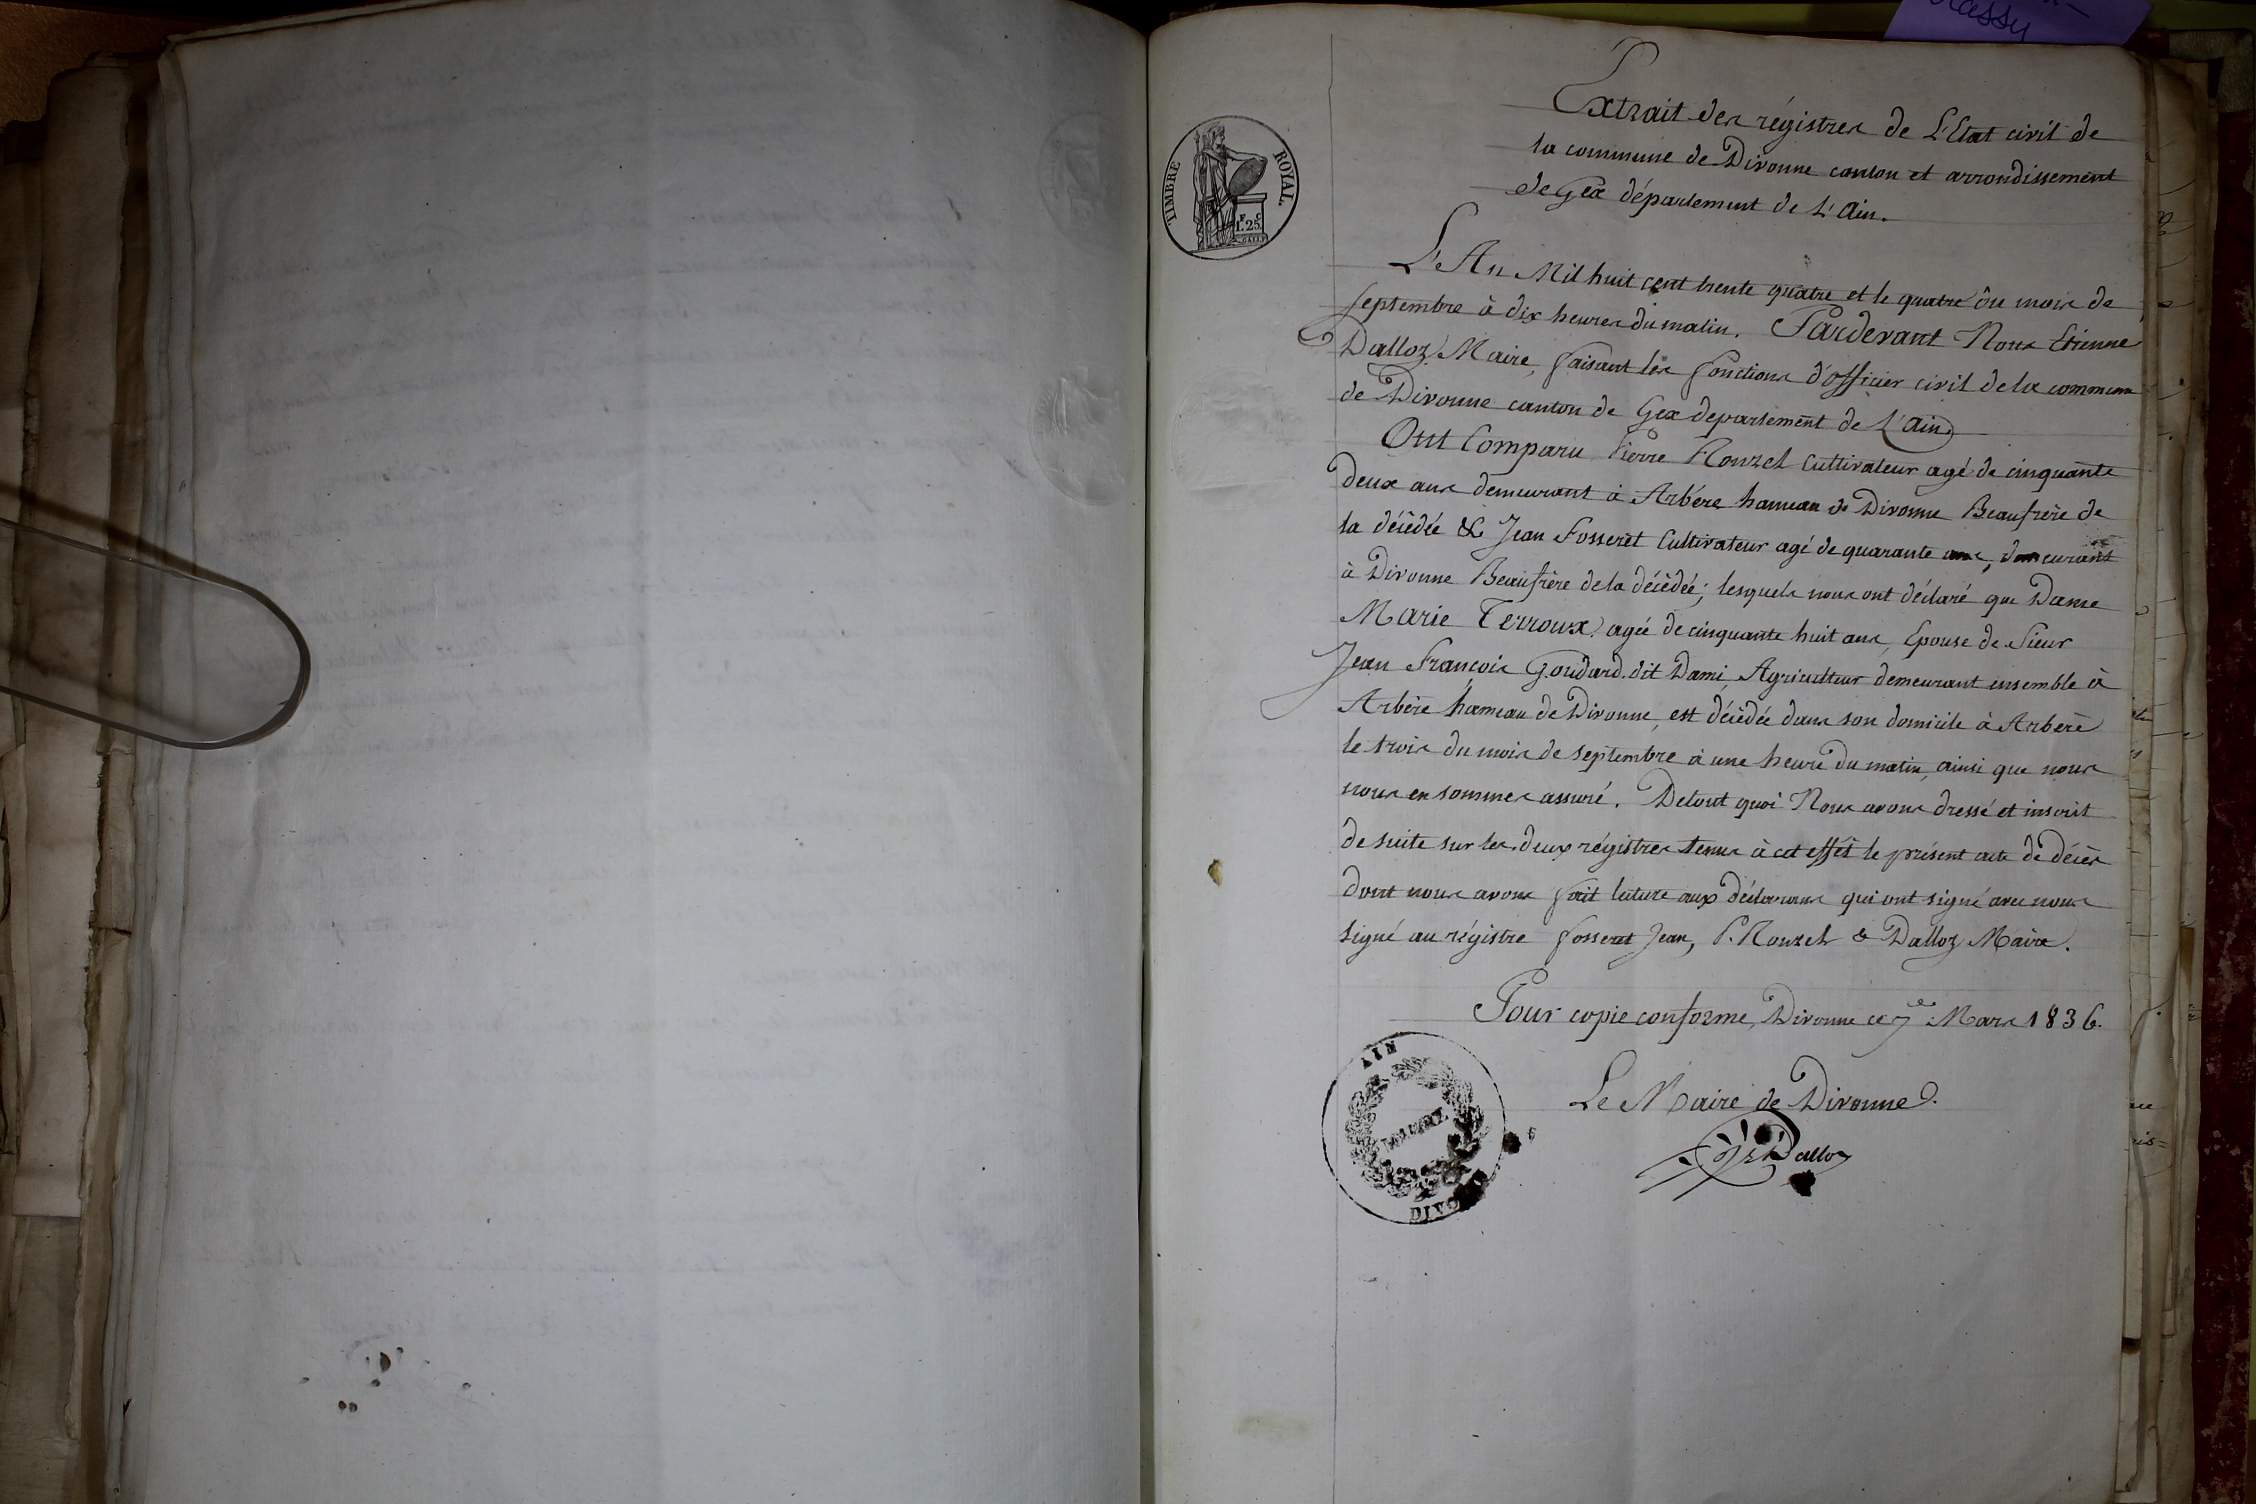 assy
LIMBRE ROYAL
F. C.
1.25
Extrait des régistres de L'Etat civil de
la commune de Divonne canton et arrondissement
de Gex département de L'Ain.
L'An Mil huit cent trente quatre et le quatre du mois de
septembre à dix heures du matin. Pardevant Nous Etienne
Dalloz Maire, faisant les fonctions d'officier civil de la commune
de Divonne canton de Gex departement de L'Ain
Ont Comparu Pierre Rouzet Cultivateur agé de cinquante
deux ans demeurant à Arbère hameau de Divonne Beaufrère de
la décédée & Jean Fosseret Cultivateur agé de quarante ans, demeurant
à Divonne Beaufrère de la décédée; lesquels nous ont déclaré que Dame
Marie Terroux agée de cinquante huit ans, Epouse de Sieur
Jean François Goudard dit Dami, Agriculteur demeurant ensemble à
Arbère hameau de Divonne, est décédée dans son domicile à Arbère
le trois du mois de septembre à une heure du matin, ainsi que nous
nous en sommes assuré. De tout quoi Nous avons dressé et inscrit
de suite sur les deux régistres tenus à cet effet le présent acte de décès
dont nous avons fait lecture aux déclarans qui ont signé avec nous
signé au régistre fosseret Jean, P. Rouzet & Dalloz Maire.
Pour copie conforme, Divonne ce 7e Mars 1836.
Le Maire de Divonne.
Dalloz
AIN
DIVONNE